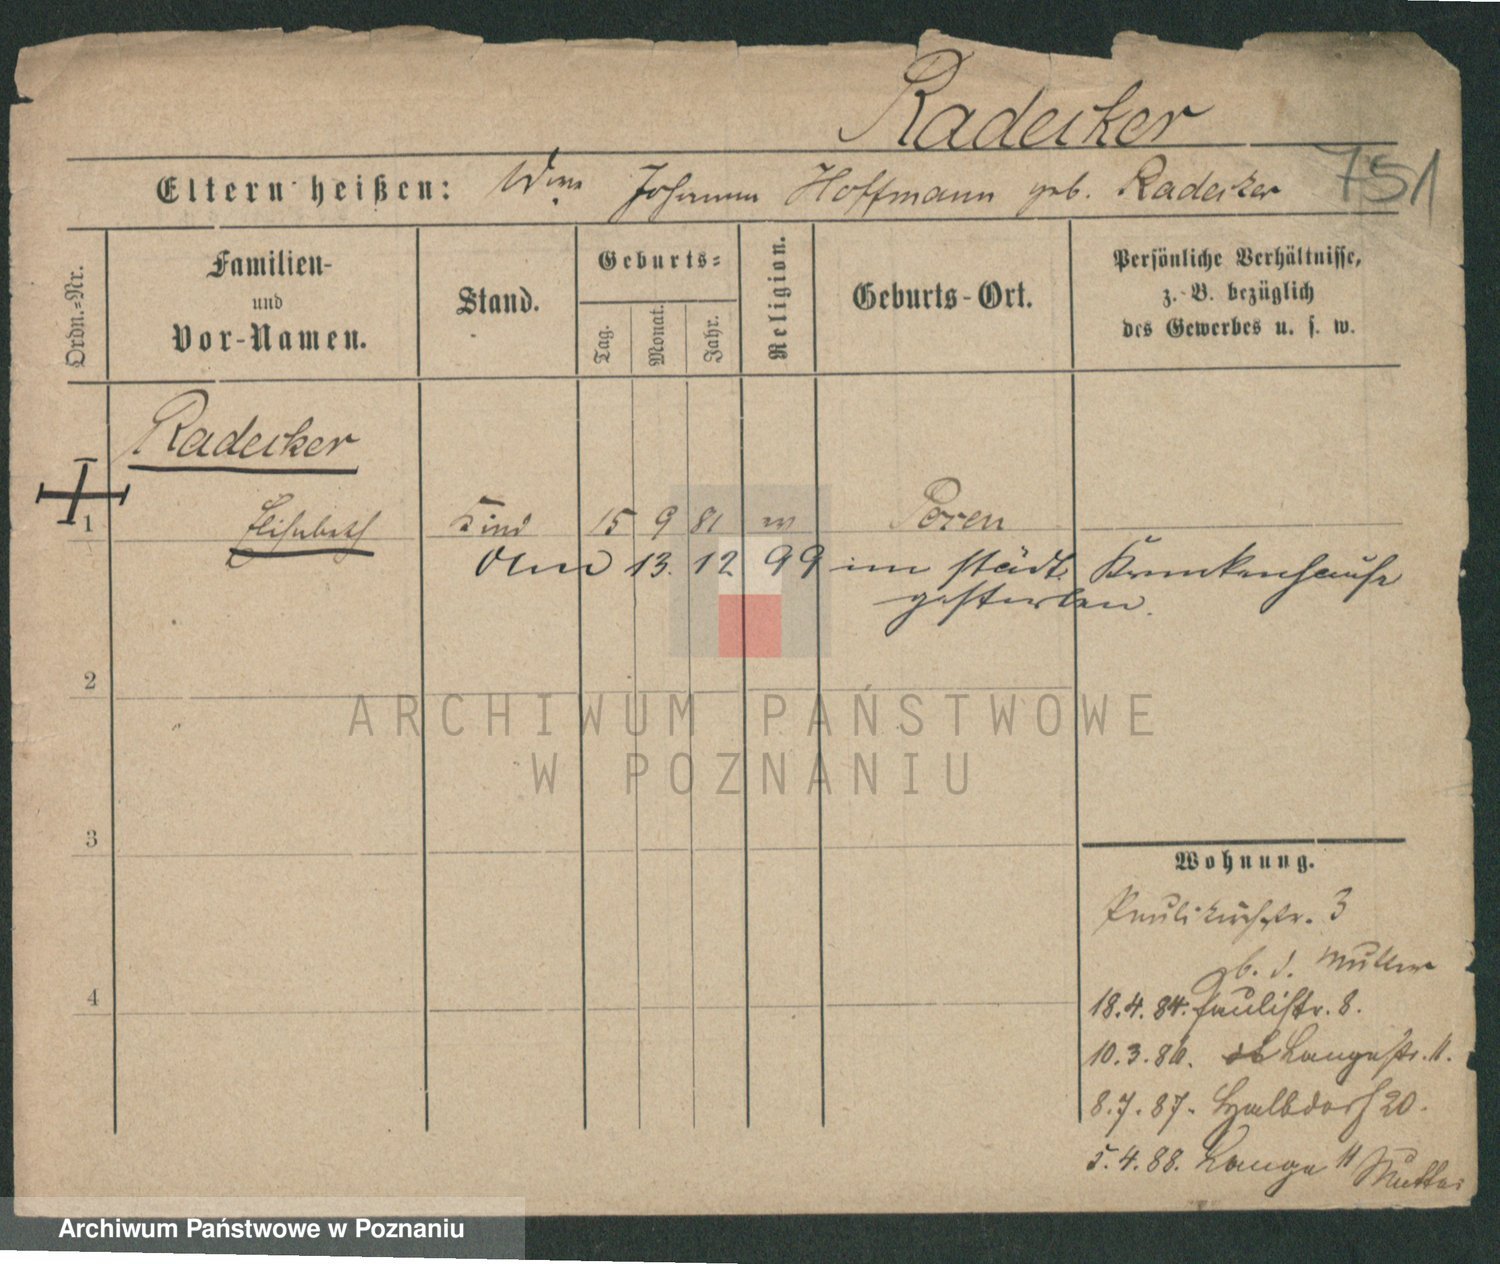 Radecker
751
Eltern heißen: Wwe. Johanna Hoffmann geb. Radecker
Ordn.-Nr.
Familien-
und
Vor-Namen.
Stand.
Geburts-
Tag.
Monat.
Jahr.
Religion.
Geburts-Ort.
Persönliche Verhältnisse,
z. B. bezüglich
des Gewerbes u. s. w.
Radecker
1 Elisabeth Kind 15 9 81 Posen
Am 13. 12 99 im städt. Krankenhause
gestorben.
2
ARCHIWUM PAŃSTWOWE
W POZNANIU
3
Wohnung.
Paulikirchstr. 3
b. d. Mutter
4
18.4.84. Paulistr. 8.
10.3.86. Langestr. 11.
8.7.87. Halbdorf 20.
5.4.88. Lange 11 Mutter
Archiwum Państwowe w Poznaniu